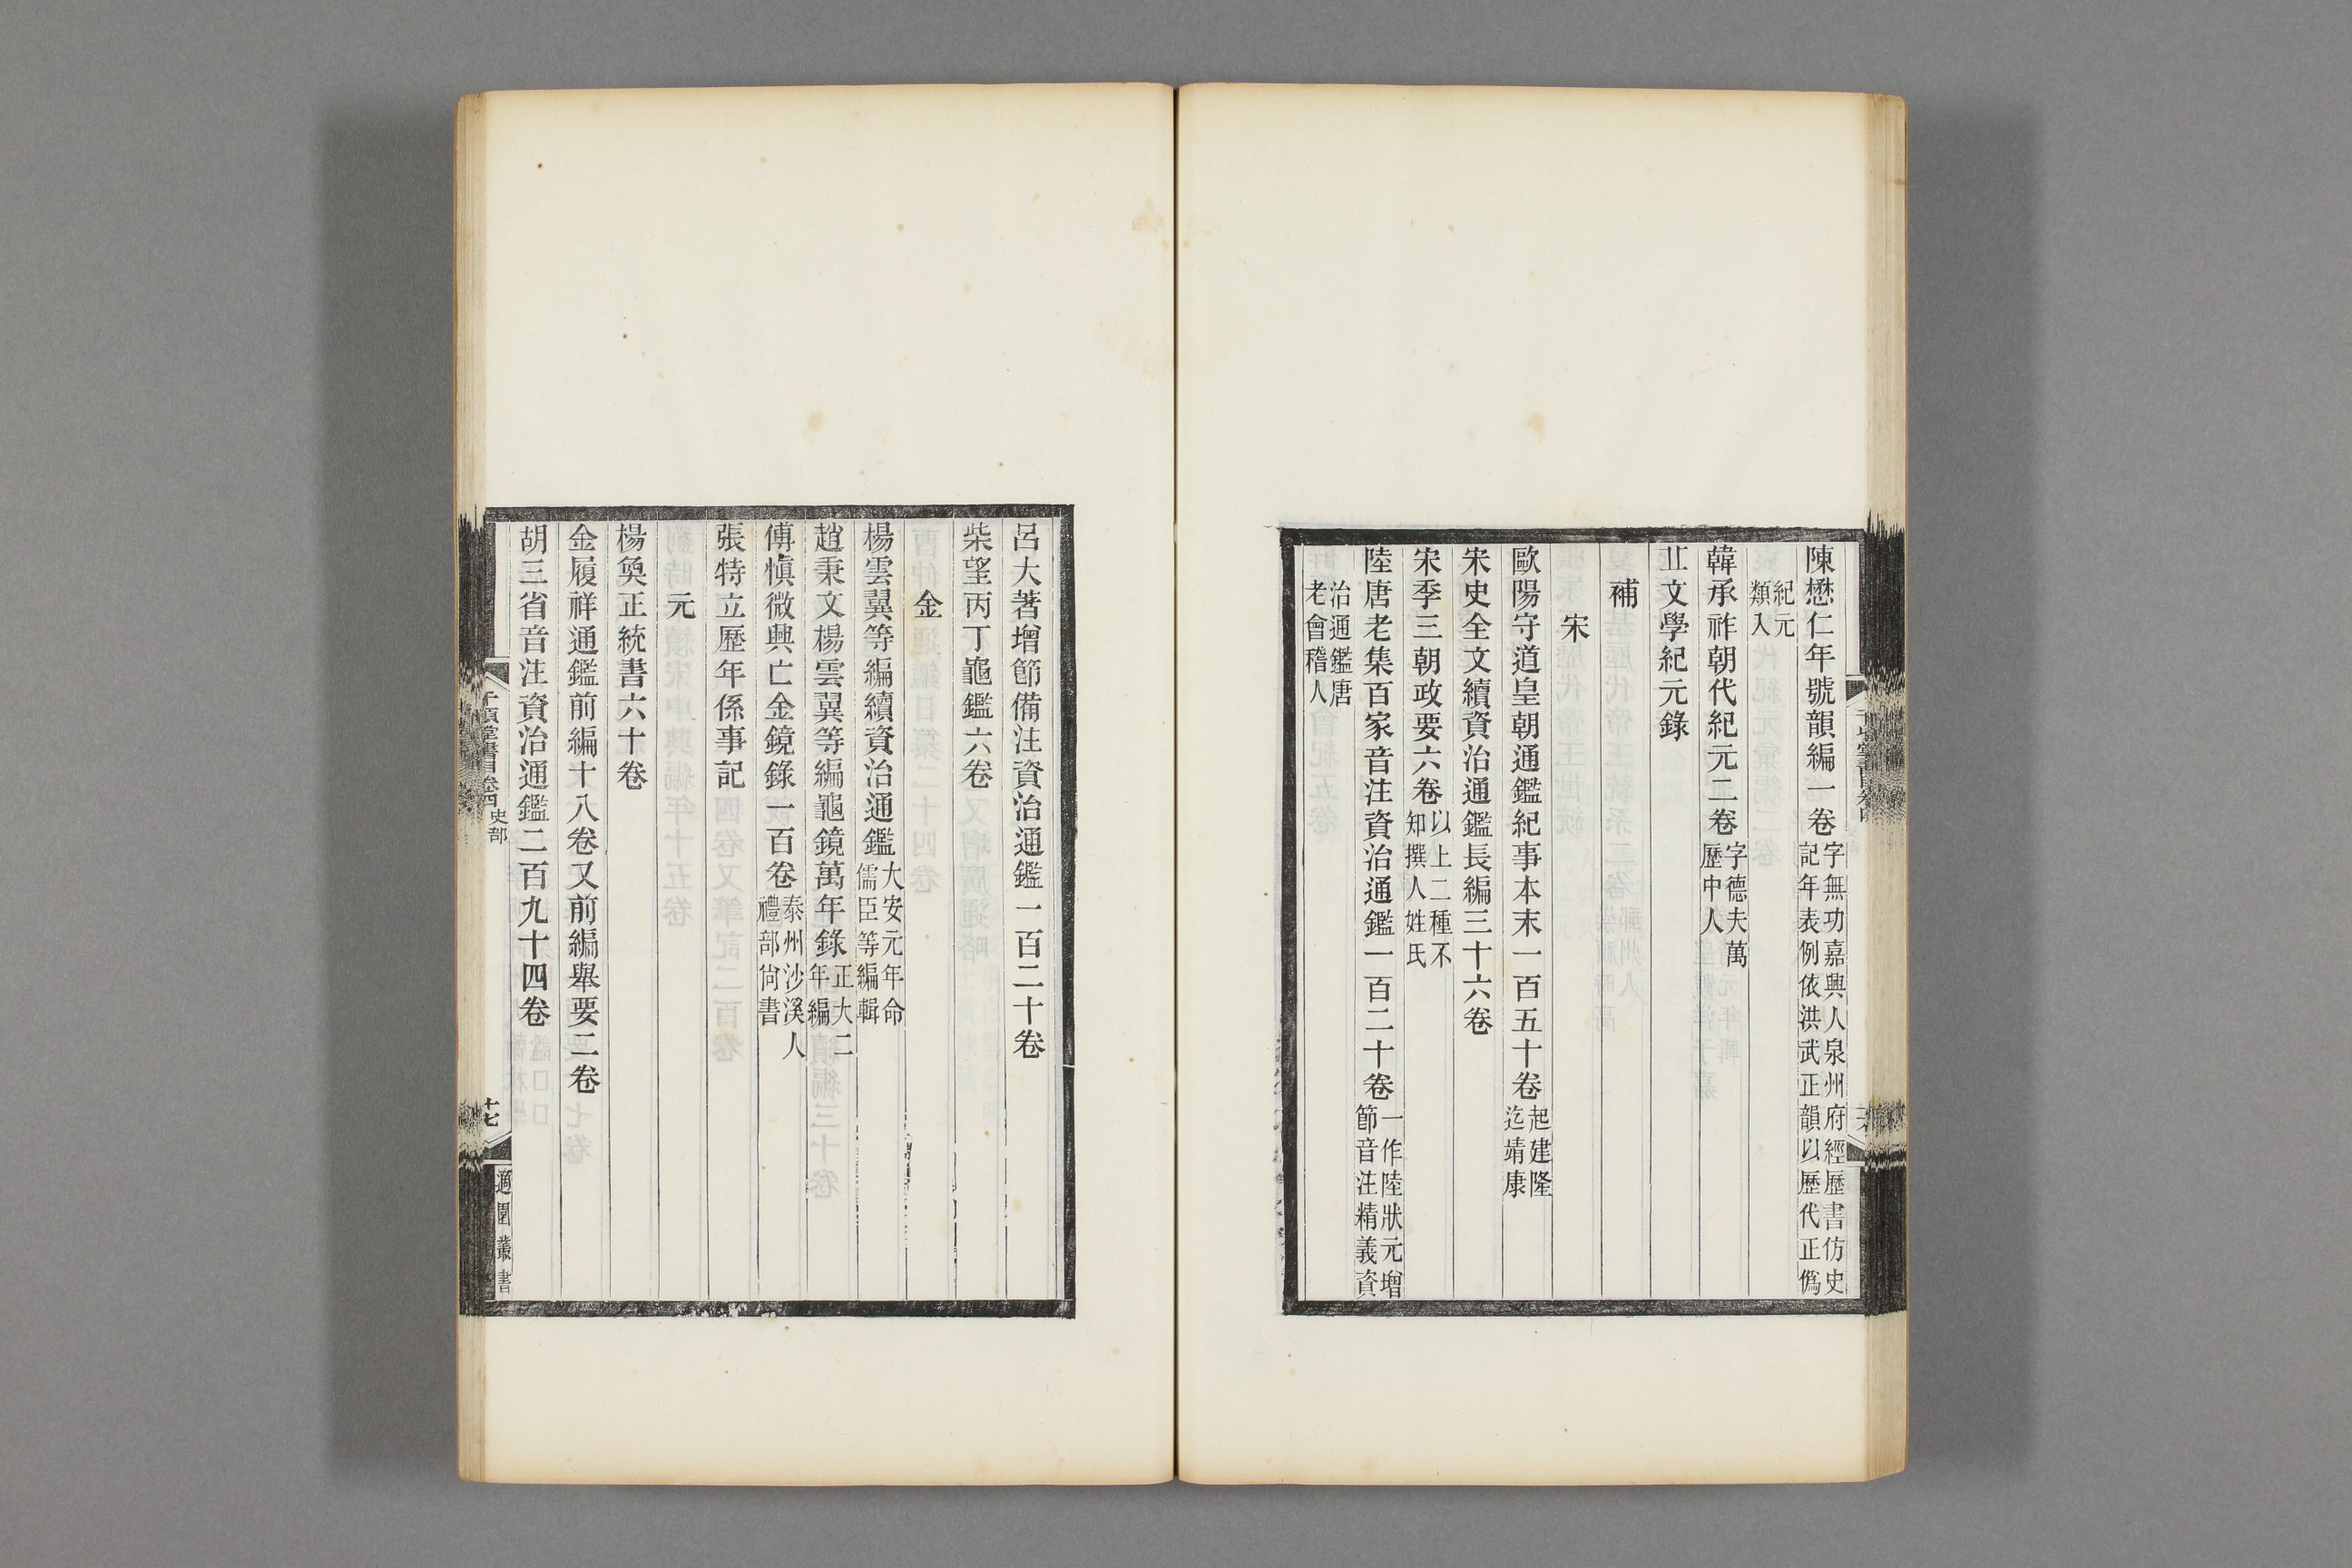 陳懋仁年號韻編一卷字無功嘉興人泉州府經歷書仿史記年表例依洪武正韻以歷代正僞
紀元類入
韓承祚朝代紀元二卷字德夫萬歷中人
文學紀元錄
補
宋
歐陽守道皇朝通鑑紀事本末一百五十卷起建隆迄靖康
宋史全文續資治通鑑長編三十六卷
宋季三朝政要六卷以上二種不知撰人姓氏
陸唐老集百家音注資治通鑑一百二十卷一作陸狀元增節音注精義資
治通鑑唐老會稽人
呂大著增節備注資治通鑑一百二十卷
柴望丙丁龜鑑六卷
金
楊雲翼等編續資治通鑑大安元年命儒臣等編輯
趙秉文楊雲翼等編龜鏡萬年錄正大二年編
傅慎微興亡金鏡錄一百卷泰州沙溪人禮部尙書
張特立歷年係事記
元
楊奐正統書六十卷
金履祥通鑑前編十八卷又前編舉要二卷
胡三省音注資治通鑑二百九十四卷
千頃堂書目卷四 史部
十七
適園叢書